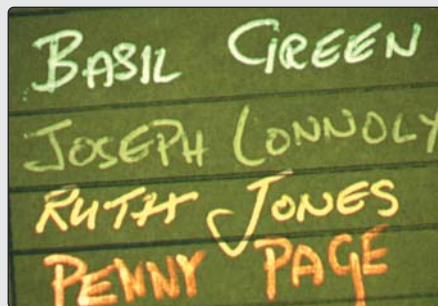 BASIL GREEN
JOSEPH CONNOLY
RUTH JONES
PENNY PAGE